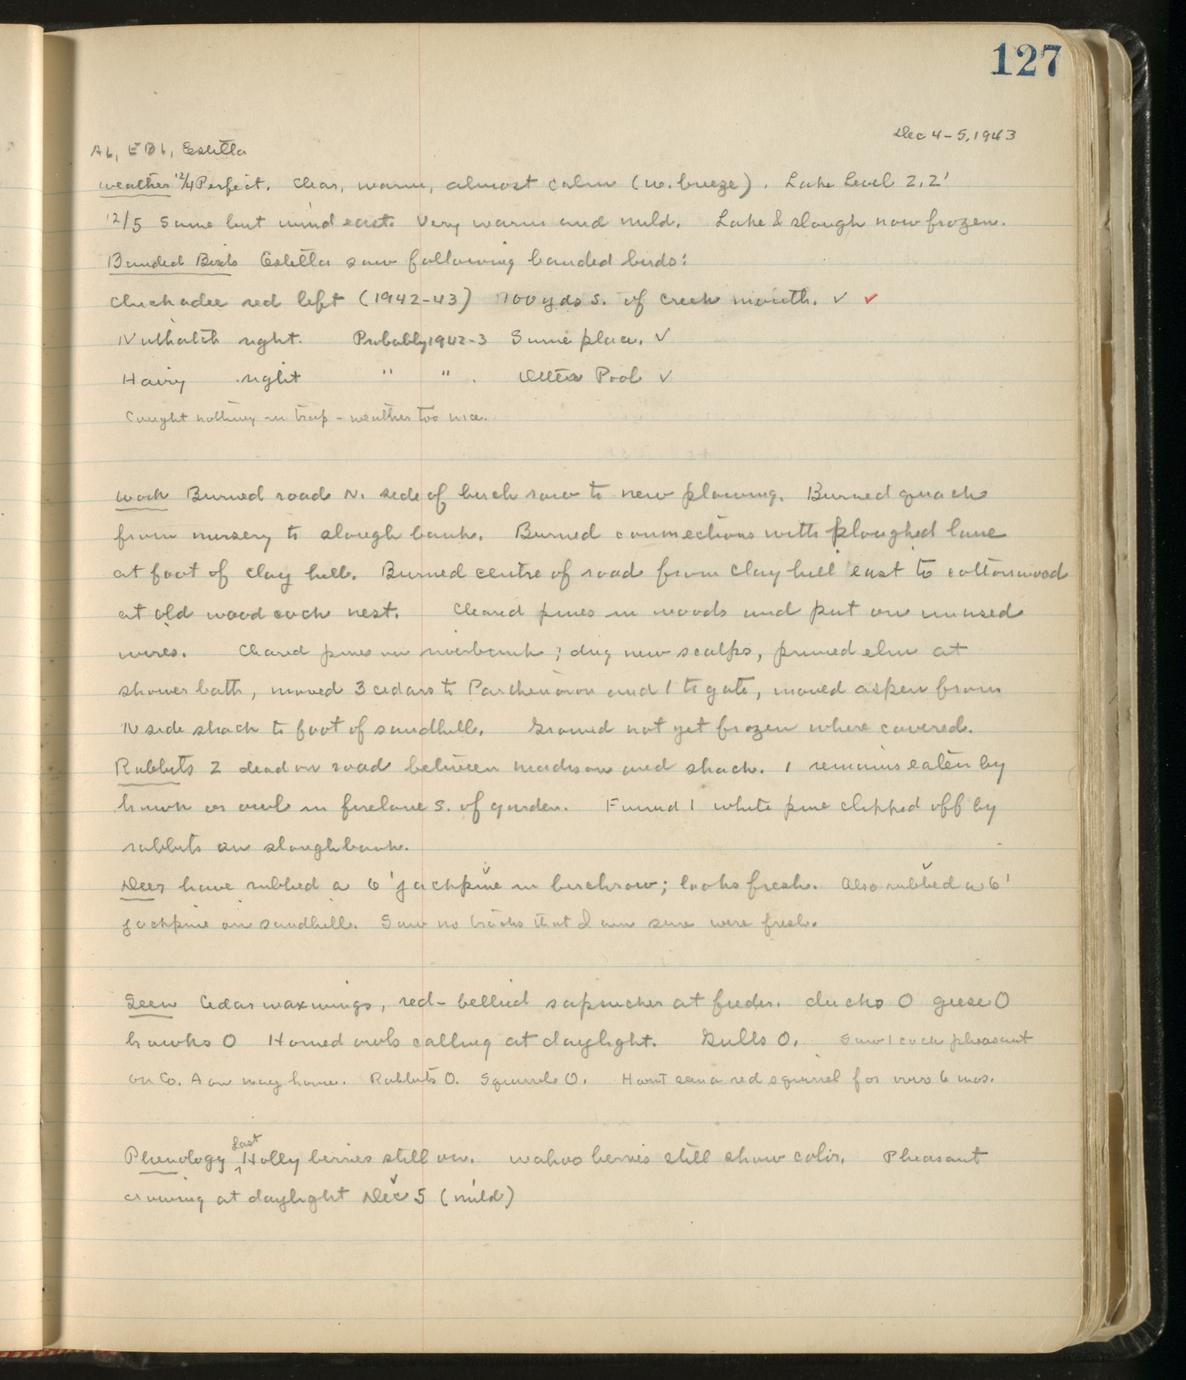 127
Dec 4-5, 1943
AL, EBL, Estella
Weather 12/4 Perfect. Clear, warm, almost calm (w. breeze). Lake Level 2.2'
12/5 Same but wind east. Very warm and mild. Lake & slough now frozen.
Banded Birds Estella saw following banded birds:
Chickadee red left (1942-43) 700 yds S. of creek mouth. ✓ ✓
Nuthatch right. Probably 1942-3 Same place. ✓
Hairy right " " . Otter Pool ✓
Caught nothing in trap - weather too nice.
Work Burned road N. side of birch row to new plowing. Burned quack
from nursery to slough bank. Burned connections with ploughed lane
at foot of clay hill. Burned centre of road from clay hill east to cottonwood
at old woodcock nest. Cleared pines in woods and put on unused
wires. Cleared pines on riverbank; dug new scalps, pruned elm at
shower bath, moved 3 cedars to Parthenon and 1 to gate, moved aspen from
N side shack to foot of sandhill. Ground not yet frozen where covered.
Rabbits 2 dead on road between Madison and shack. 1 remains eaten by
hawk or owl in firelane S. of garden. Found 1 white pine clipped off by
rabbits on sloughbank.
Deer have rubbed a 6' jackpine in birchrow; looks fresh. Also rubbed a 6'
jackpine on sandhill. Saw no tracks that I am sure were fresh.
Seen Cedar waxwings, red-bellied sapsucker at feeder. ducks 0 geese 0
hawks 0 Horned owls calling at daylight. Gulls 0. Saw 1 cock pheasant
on Co. A on way home. Rabbits 0. Squirrels 0. Havnt seen a red squirrel for over 6 mos.
Phenology Last Holly berries still on. Wahoo berries still show color. Pheasant
crowing at daylight Dec 5 (mild)